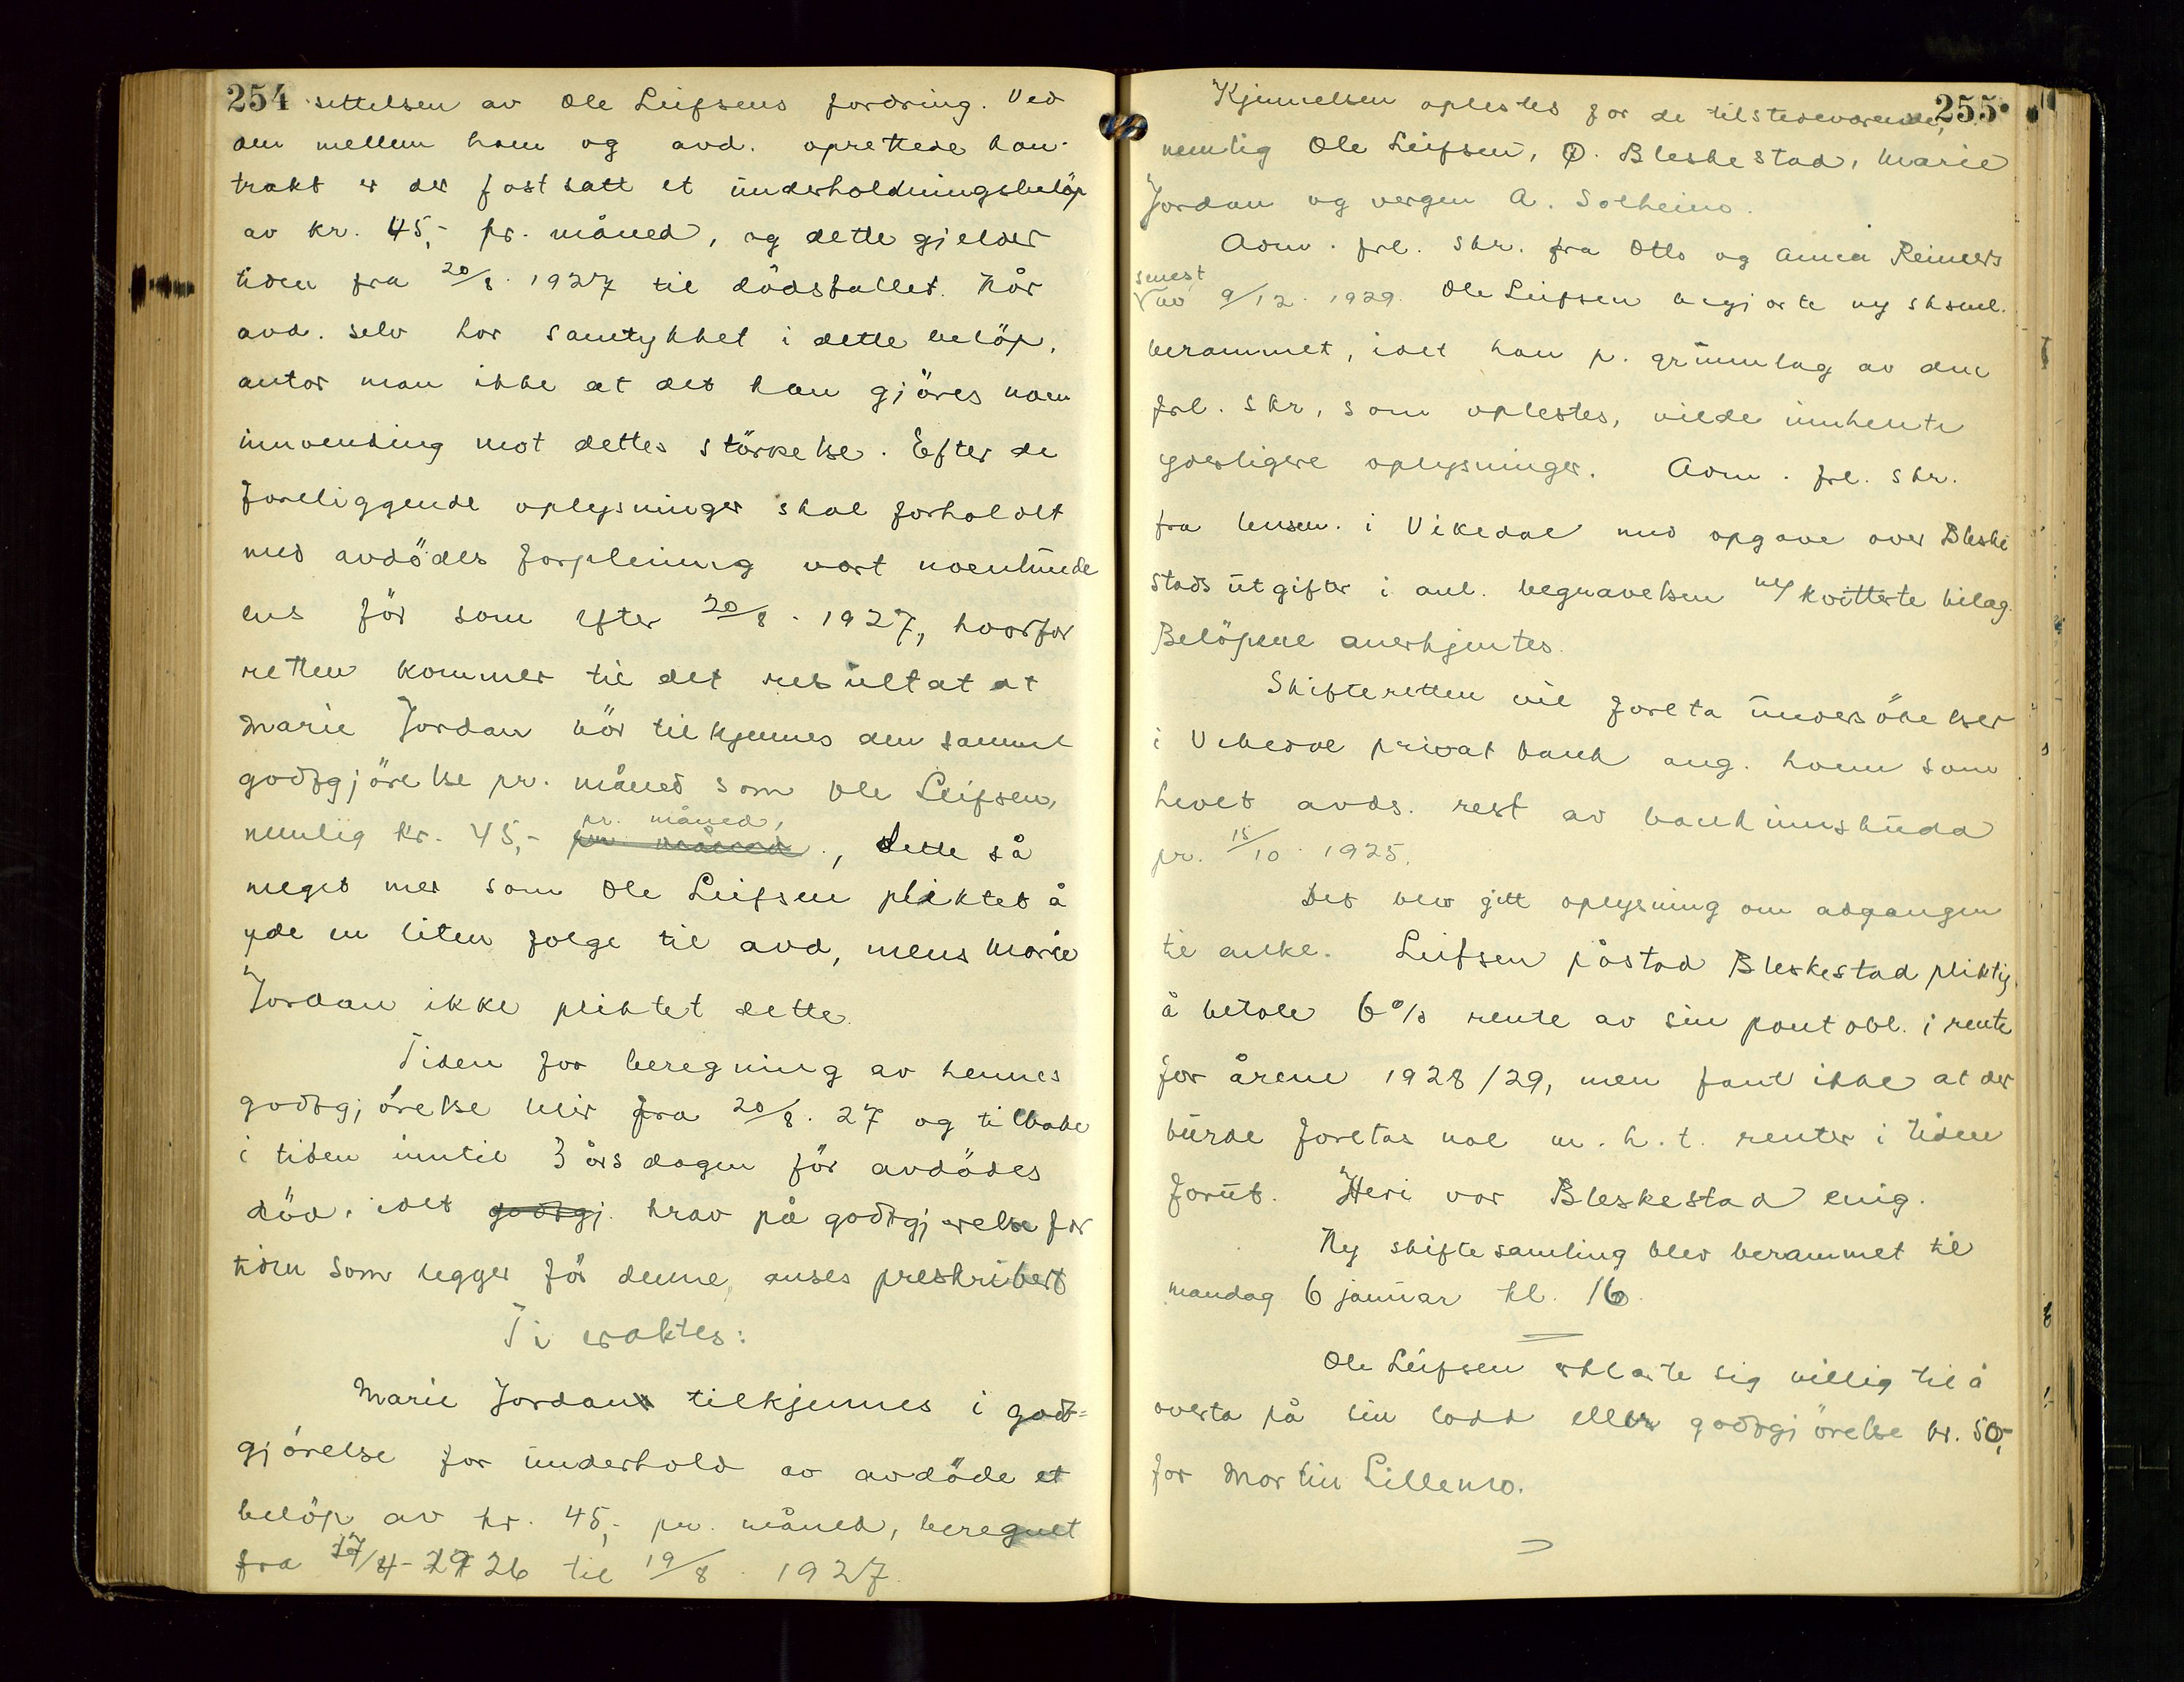 254 settelsen av Ole Leifsens fordring. Ved
den mellem ham og avd. oprettede kon-
trakt er der fastsatt et underholdningsbelöp
av kr. 45,- pr. måned, og dette gjelder
tiden fra 20/8. 1927 til dödsfallet. Når
avd. selv har samtykket i dette belöp,
antar man ikke at det kan gjöres noen
innvending mot dettes störrelse. Efter de
foreliggende oplysninger skal forholdet
med avdödes forpleining vært noenlunde
ens för som efter 20/8. 1927, hvorfor
retten kommer til det resultat at
Marie Jordan bör tilkjennes den samme
godtgjörelse pr. måned som Ole Leifsen,
pr. måned,
nemlig kr. 45,- pr. måned, dette så
meget mer som Ole Leifsen pliktet å
yde en liten folge til avd, mens Marie
Jordan ikke pliktet dette.
Tiden for beregning av hennes
godtgjörelse blir fra 20/8. 27 og tilbake
i tiden inntil 3 årsdagen för avdödes
död, idet godtgj. krav på godtgjørelse for
tiden som legger för denne, anses preskribert
Ti eraktes:
Marie Jordan tilkjennes i godt=
gjörelse for underhold av avdöde et
belöp av kr. 45,- pr. måned, beregnet
fra 17/4-1926 til 19/8. 1927.
Kjennelsen oplestes for de tilstedeværende, 255
nemlig Ole Leifsen, O. Bleskestad, Marie
Jordan og vergen A. Solheim.
Adm. frl. skr. fra Otto og Anna Reimers
senest
av 9/12. 1929. Ole Leifsen begjærte ny sksml.
berammet, idet han p. grunnlag av den
frl. skr, som oplestes, vilde innhente
yderligere oplysninger. Adm. frl. skr.
fra lensm. i Vikedal med opgave over Bleske
stads utgifter i anl. begravelsen m/ kvitterte bilag.
Belöpene anerkjentes.
Skifteretten vil foreta undersökelser
i Vikedal privatbank ang. hvem som
hevet avds. rest av bankinnskudd
pr. 15/10. 1925.
Det blev gitt oplysning om adgangen
til anke. Leifsen påstod Bleskestad pliktig
å betale 6% rente av sin pantobl. i rente
for årene 1928/29, men fant ikke at der
burde foretas noe m. h. t. renter i tiden
forut. Heri var Bleskestad enig.
Ny skiftesamling blev berammet til
mandag 6 januar kl. 16.
Ole Leifsen erklærte sig villig til å
overta på sin lodd eller godtgjörelse kr. 50,-
for Martin Lillemo.